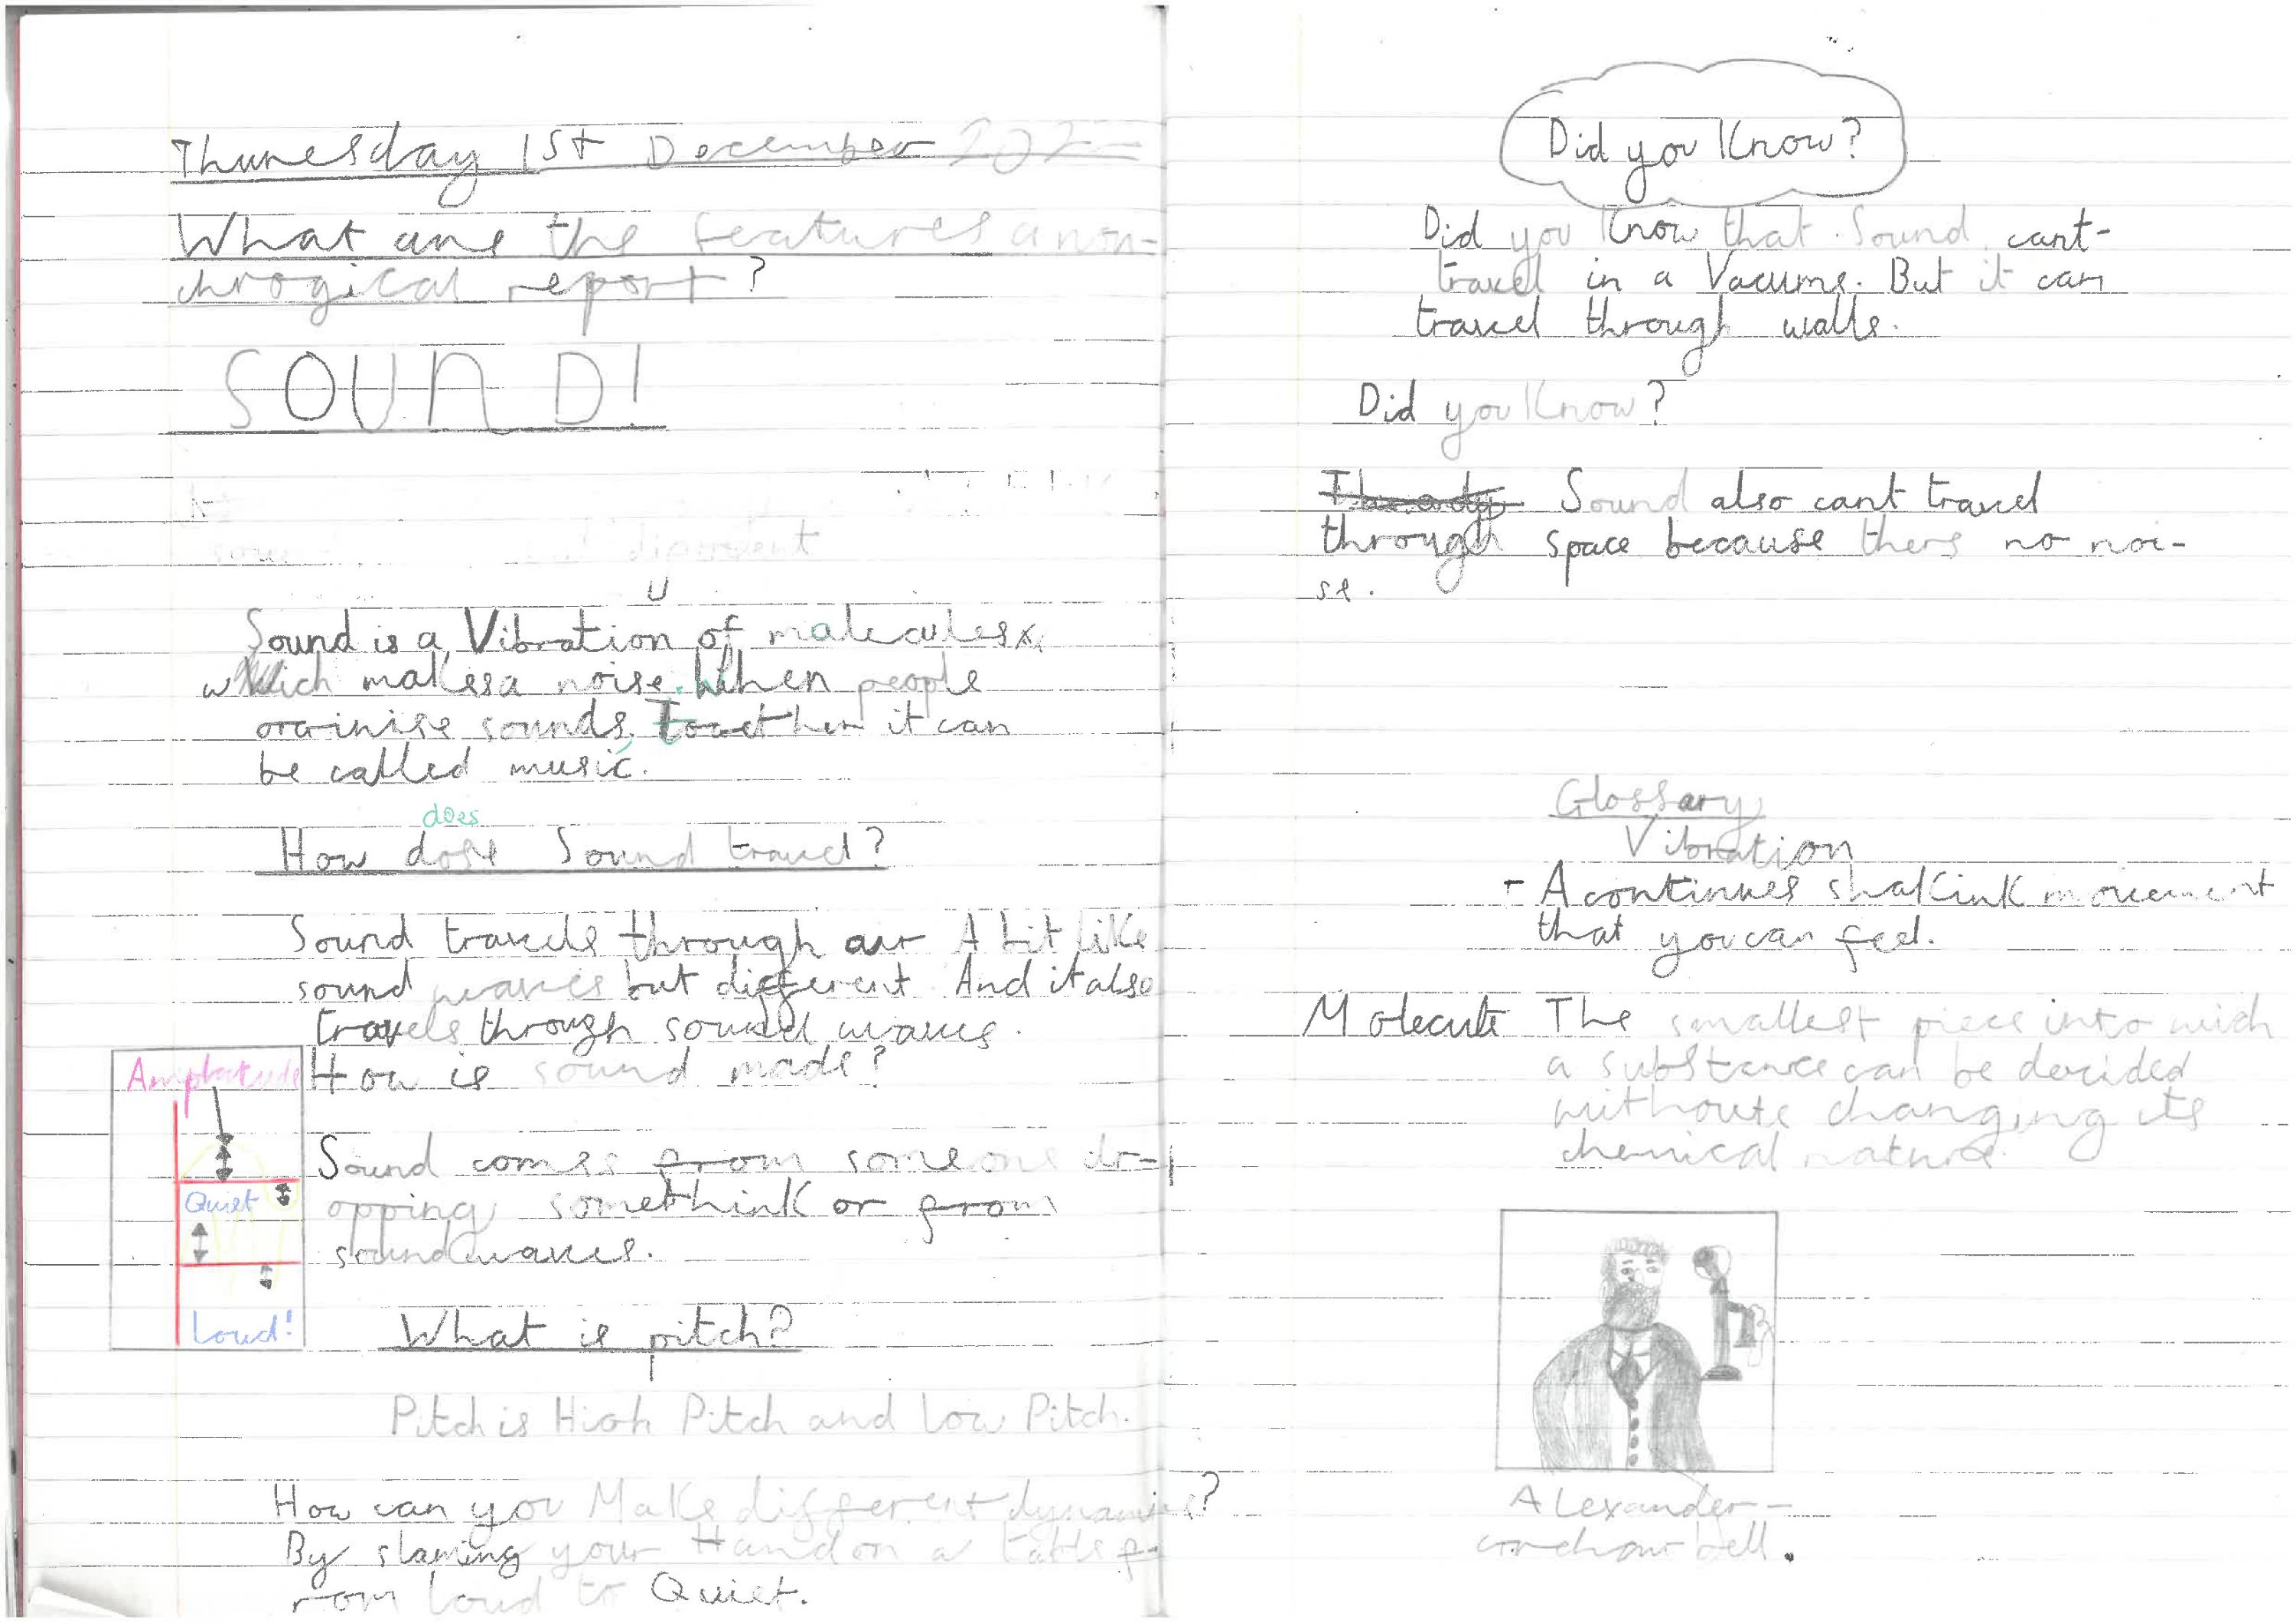 Thuresday 1st December 202
What are the features a non-
chrogical report?
SOUND!
Sound is a Vibration of malecules
which makes a noise. When people
orginise sounds, together it can
be called music.
does
How dose Sound travel?
Sound travels through air A bit like
sound waves but different. And it also
travels through sound waves.
How is sound made?
Sound comes from someone dr-
opping somethink or from
sound waves.
Amplatude
Quiet
Loud!
What is pitch?
Pitch is High Pitch and Low Pitch.
How can you Make different dynamics?
By slaming your Hand on a table f-
rom loud to Quiet.
Did you Know?
Did you Know that Sound cant-
travel in a Vacume. But it can
travel through walls.
Did you Know?
Sound also cant travel
through space because thers no noi-
se.
Glossary
Vibration
- A continues shakink movement
that you can feel.
Molecule The smallest piece into wich
a substance can be decided
withoute changing its
chemical nature.
Alexander-
bell.